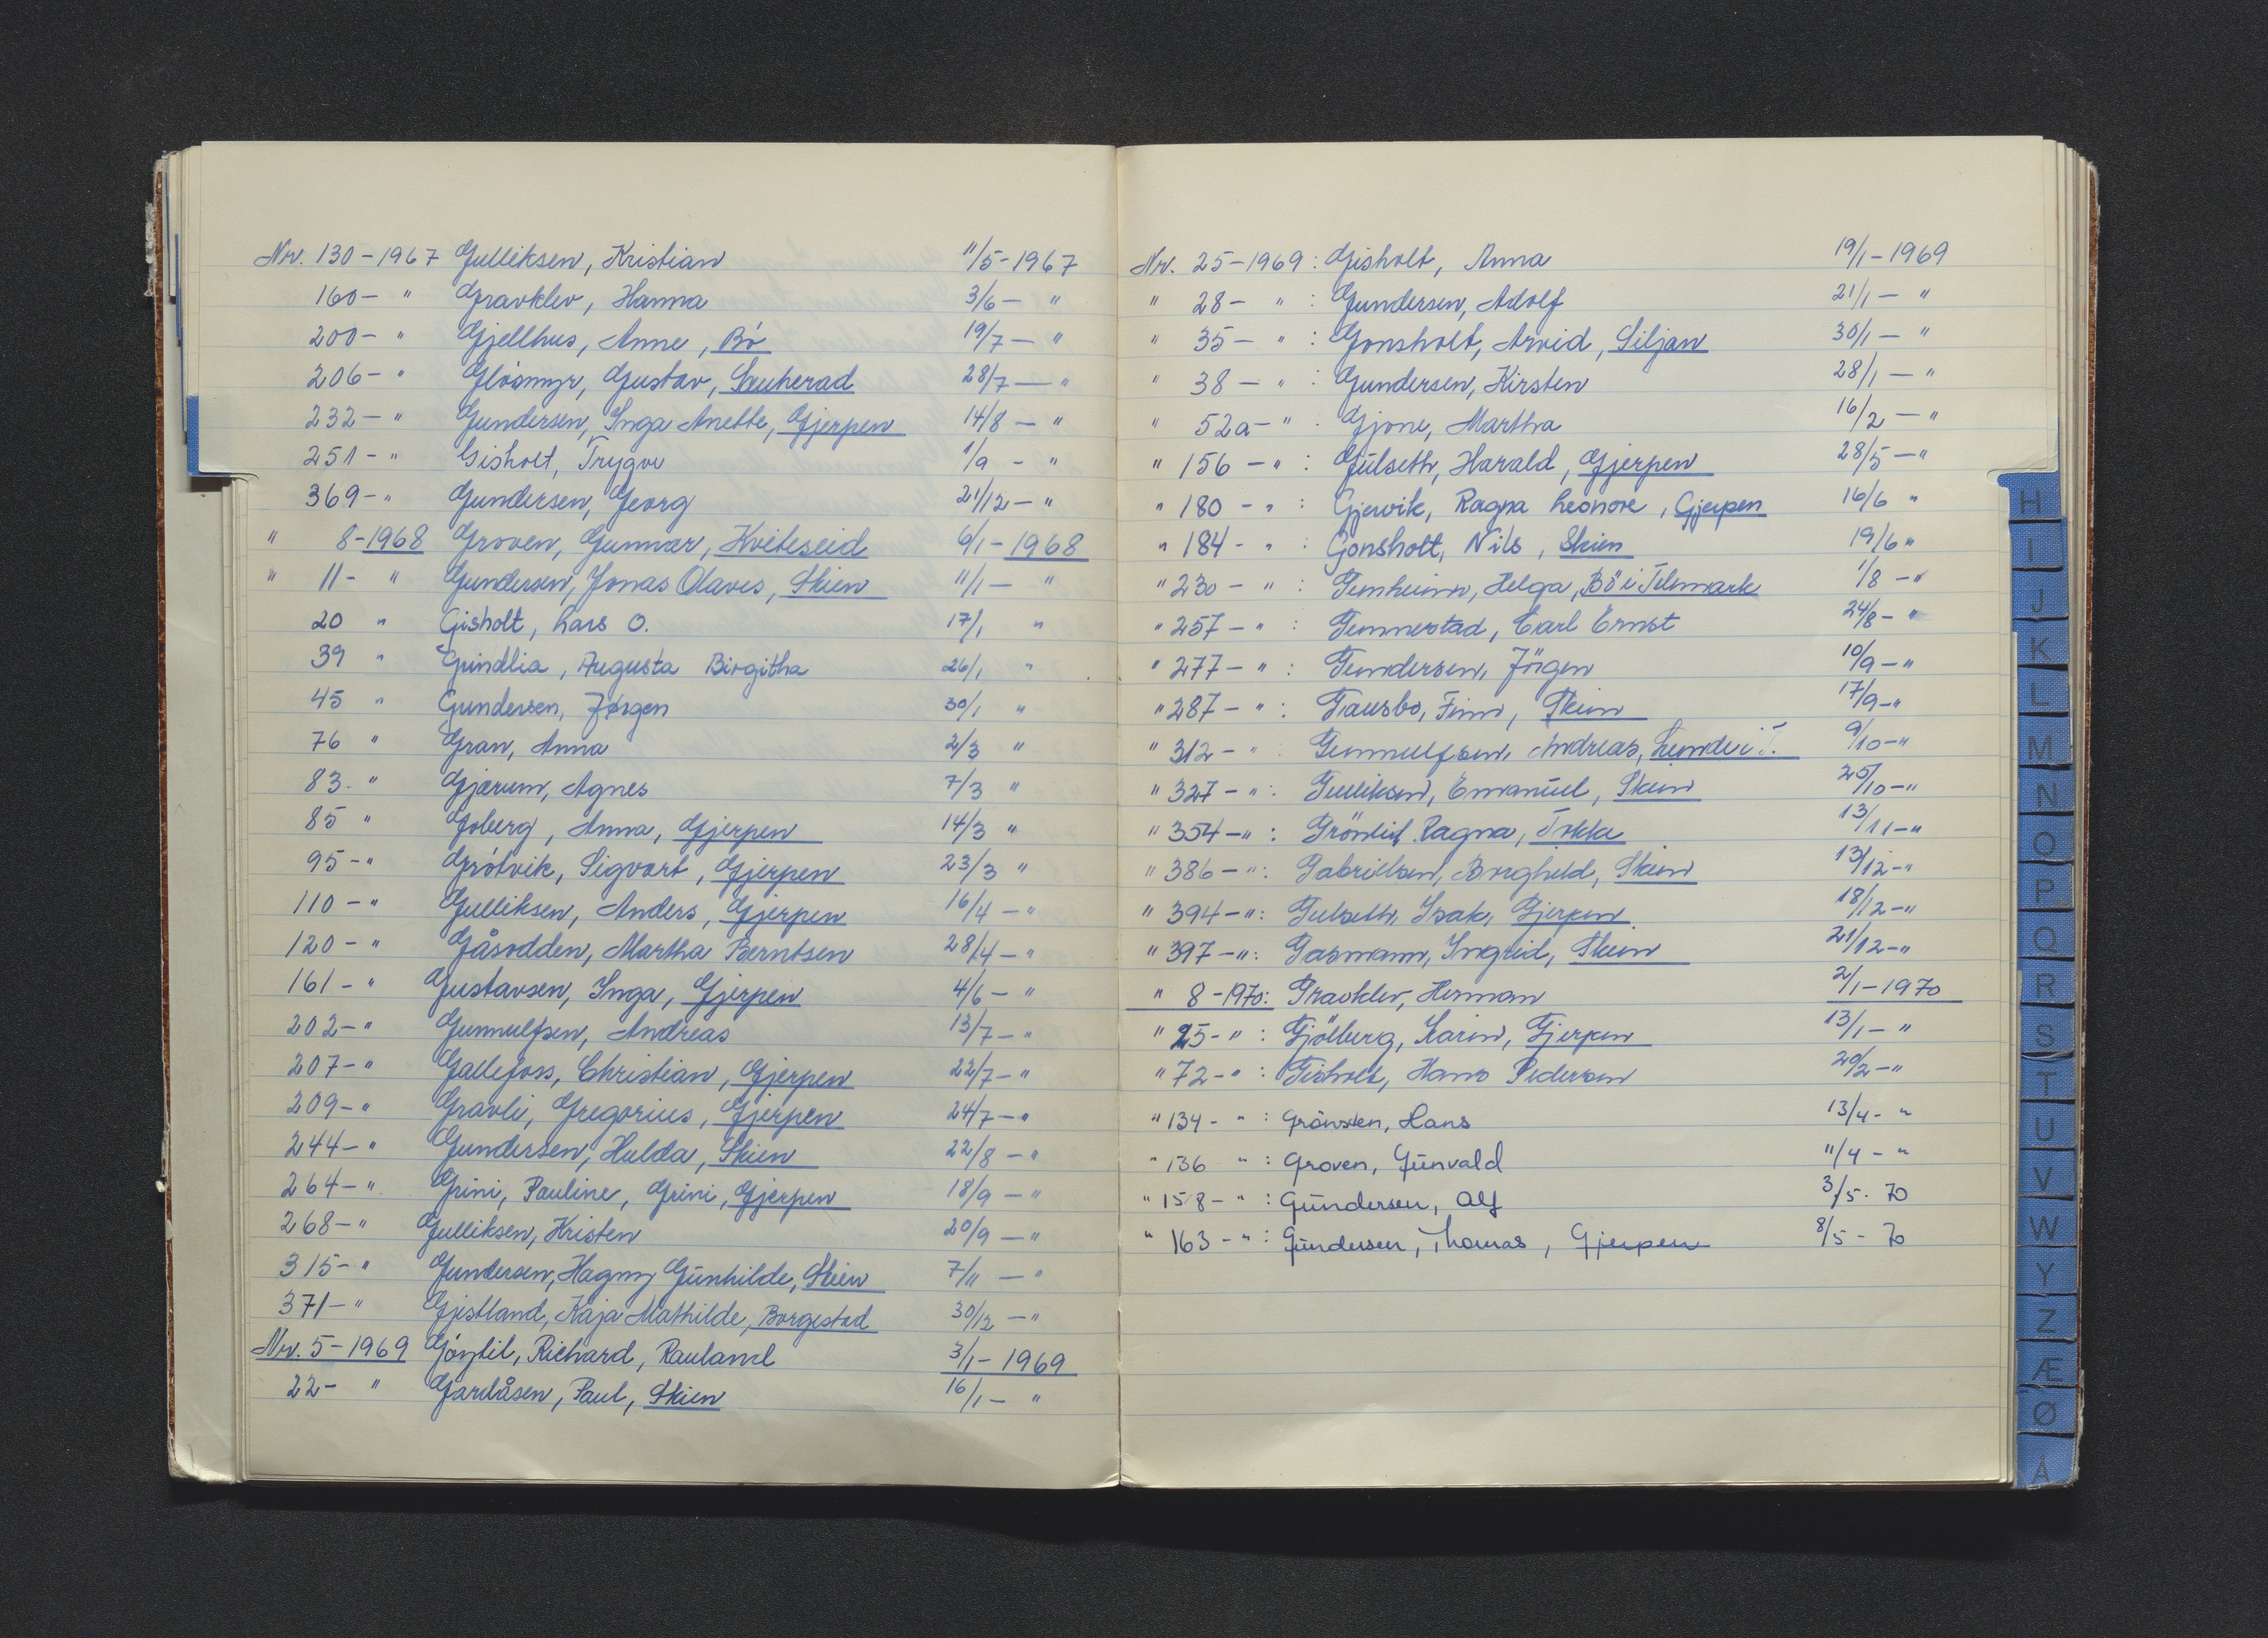 Nr. 130 - 1967 Gulliksen, Kristian 11/5 - 1967
160 - " Gravklev, Hanna 3/6 - "
200 - " Gjellhus, Anne, Bó 19/7 - "
206 - " Glósmyr, Gustav, Sauherad 28/7 - "
232 - " Gundersen, Inga Anette, Gjerpen 14/8 - "
251 - " Gisholt, Trygve 1/9 - "
369 - " Gundersen, Georg 21/12 - "
" 8 - 1968 Groven, Gunnar, Kviteseid 6/1 - 1968
" 11 - " Gundersen, Jonas Olaves, Skien 11/1 - "
20 " Gisholt, Lars O. 17/1 "
39 " Grindlia, Augusta Birgitha 26/1 "
45 " Gundersen, Jørgen 30/1 "
76 " Gran, Anna 2/3 "
83. " Gjærum, Agnes 7/3 "
85 " Goberg, Anna, Gjerpen 14/3 "
95 - " Grótvik, Sigvart, Gjerpen 23/3 "
110 - " Gulliksen, Anders, Gjerpen 16/4 - "
120 - " Gåsodden, Martha Berntsen 28/4 - "
161 - " Gustavsen, Inga, Gjerpen 4/6 - "
202 - " Gunnulfsen, Andreas 13/7 - "
207 - " Gallefoss, Christian, Gjerpen 22/7 - "
209 - " Gravli, Gregorius, Gjerpen 24/7 - "
244 - " Gundersen, Hulda, Skien 22/8 - "
264 - " Grini, Pauline, Grini, Gjerpen 18/9 - "
268 - " Gulliksen, Kristen 20/9 - "
315 - " Gundersen, Hagny Gunhilde, Skien 7/11 - "
371 - " Gjestland, Kaja Mathilde, Borgestad 30/12 - "
Nr. 5 - 1969 Richard, Rauland 3/1 - 1969
22 - " Gardåsen, Paul, Skien 16/1 - "
Nr. 25 - 1969 : Gisholt, Anna 19/1 - 1969
" 28 - " : Gundersen, Adolf 21/1 - "
" 35 - " : Gonsholt, Arvid, Siljan 30/1 - "
" 38 - " : Gundersen, Kirsten 28/1 - "
" 52a - " : Gjone, Martha 16/2 - "
" 156 - " : Gulseth, Harald, Gjerpen 28/5 - "
" 180 - " : Gjervik, Ragna Leonore, Gjerpen 16/6 "
" 184 - " : Gonsholt, Nils, Skien 19/6 "
" 230 - " : Helga, Bö i Telemark 1/8 - "
" 257 - " : Gunnestad, Carl Ernst 24/8 - "
" 277 - " : Gundersen, Jörgen 10/9 - "
" 287 - " : Gausbo, Finn, Skien 17/9 - "
" 312 - " Gunnulfsen, Andreas, Lunde i T. 9/10 - "
" 327 - " : Gulliksen, Emanuel, Skien 25/10 - "
" 354 - " : Grönlid, Ragna, Tokke 13/11 - "
" 386 - " : Gabrielsen, Borghild, Skien 13/12 - "
" 394 - " : Gulseth, Isak, Gjerpen 18/12 - "
" 397 - " : Gasmann, Ingrid, Skien 21/12 - "
" 8 - 1970 : Gravklev, Herman 2/1 - 1970
" 25 - " : Gjölberg, Karin, Gjerpen 13/1 - "
" 72 - " : Gisholt, Hans Pedersen 20/2 - "
" 134 - " : Grönsten, Hans 13/4 - "
" 136 " : Groven, Gunvald 11/4 - "
" 158 - " : Gundersen, Alf 3/5. 70
" 163 - " : Gundersen, Thomas, Gjerpen 8/5 - 70
H
I
J
K
L
M
N
O
P
Q
R
S
T
U
V
W
Y
Z
Æ
Ø
Å